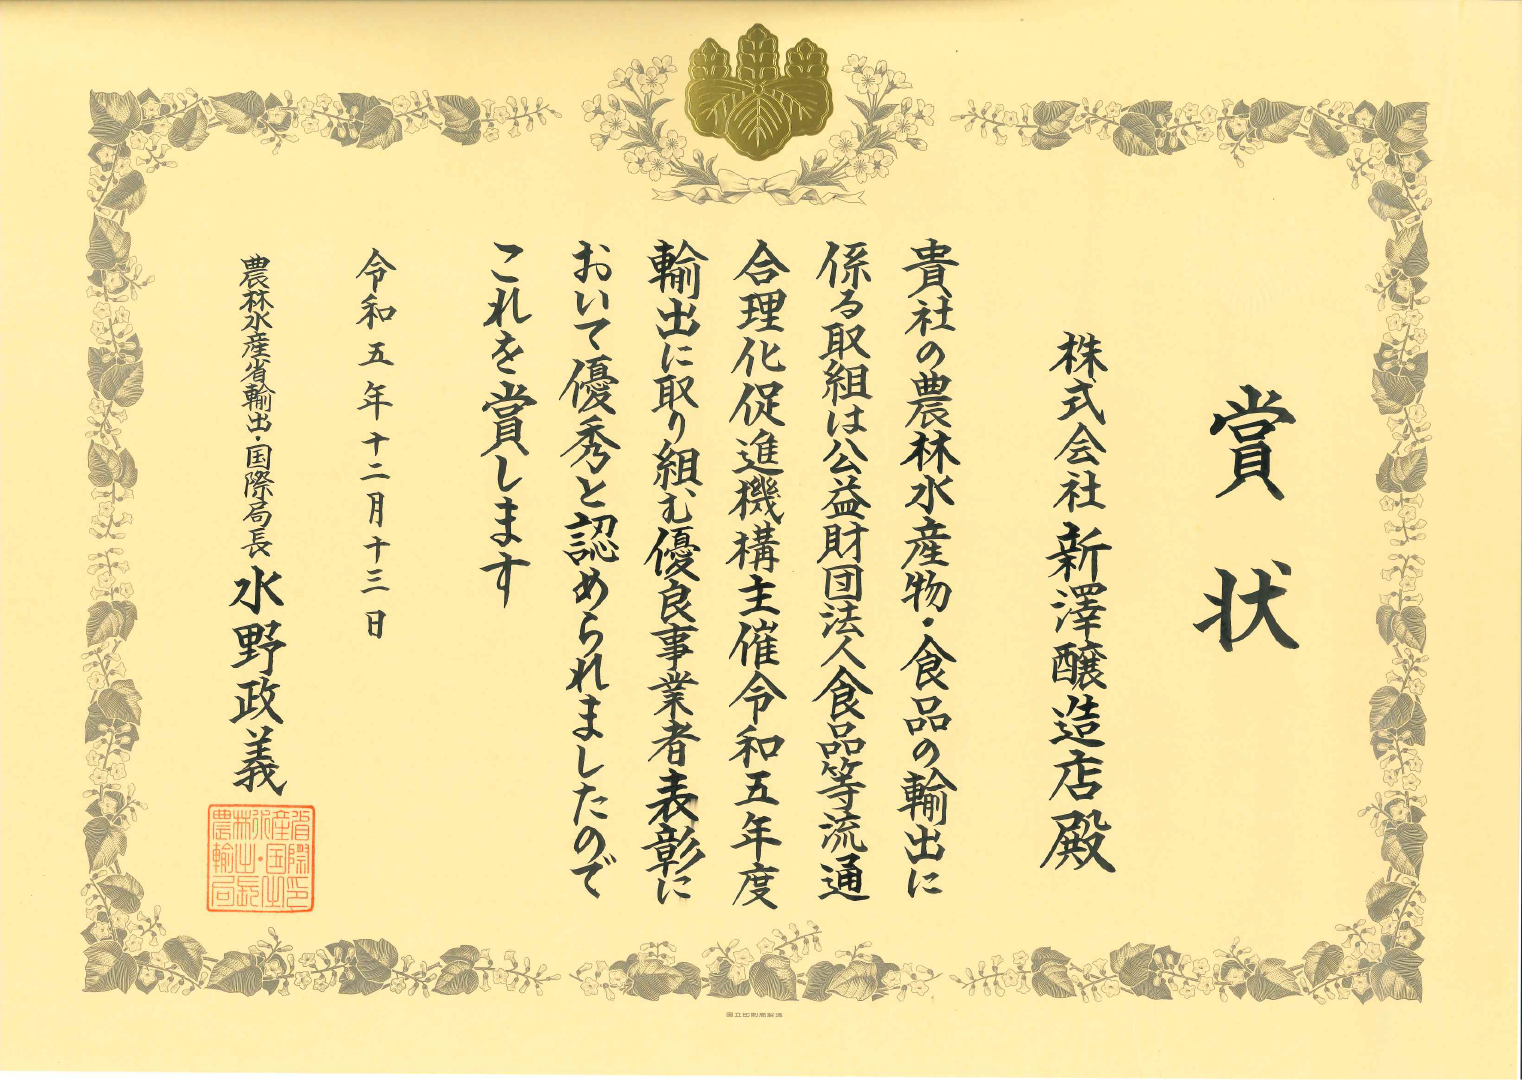 賞状
株式会社新澤醸造店殿
貴社の農林水産物・食品の輸出に
係る取組は公益財団法人食品等流通
合理化促進機構主催令和五年度
輸出に取り組む優良事業者表彰に
おいて優秀と認められましたので
これを賞します
令和五年十二月十三日
農林水産省輸出・国際局長 水野政義